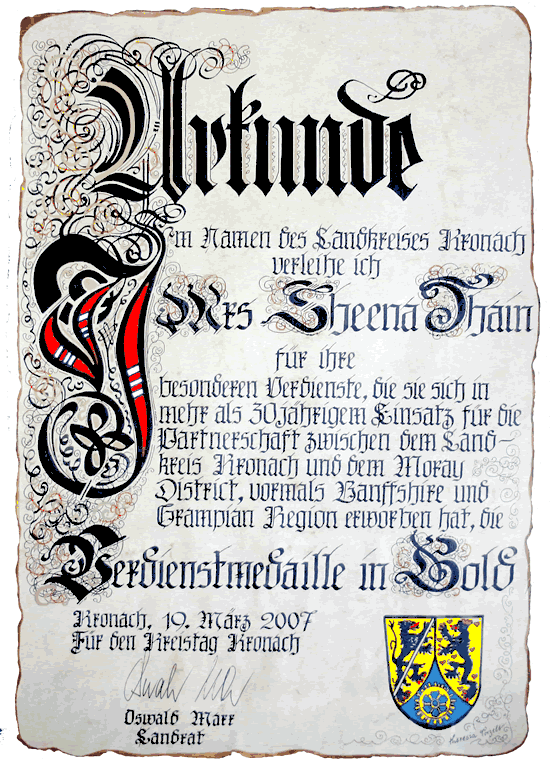 Urkunde
Im Namen des Landkreises Kronach
verleihe ich
Mrs Sheena Thain
für ihre
besonderen Verdienste, die sie sich in
mehr als 30jährigem Einsatz für die
Partnerschaft zwischen dem Land-
kreis Kronach und dem Moray
District, vormals Banffshire und
Grampian Region erworben hat, die
Verdienstmedaille in Gold
Kronach, 19. März 2007
Für den Kreistag Kronach
Oswald Marr
Oswald Marr
Landrat